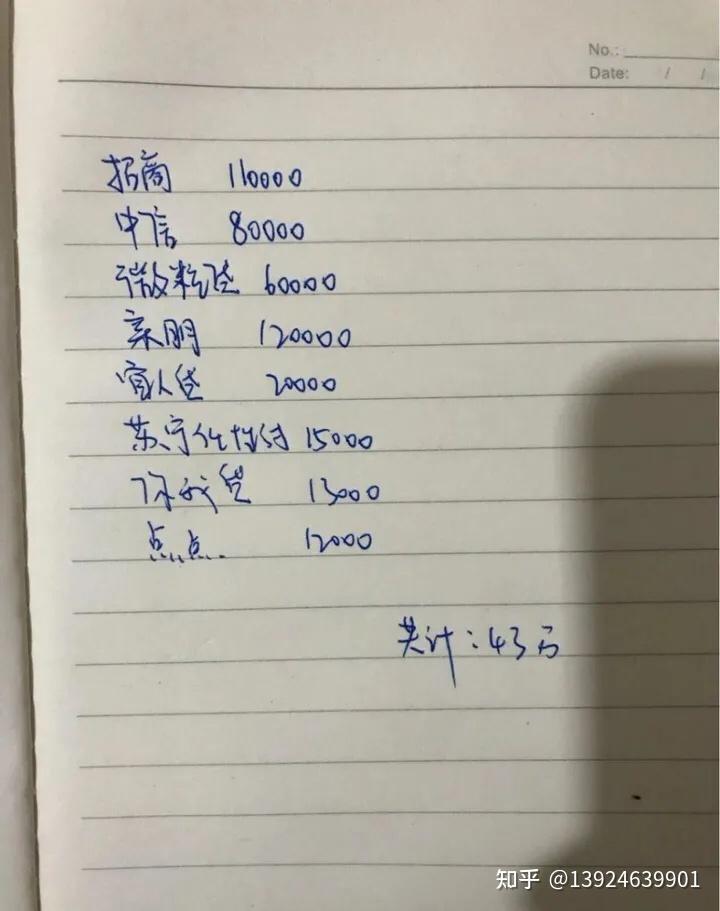 No.:
Date: / /
招商 110000
中信 80000
微粒贷 60000
亲朋 120000
宜人贷 20000
苏宁任性付 15000
你我贷 13000
点点 12000
共计:43万
知乎 @13924639901